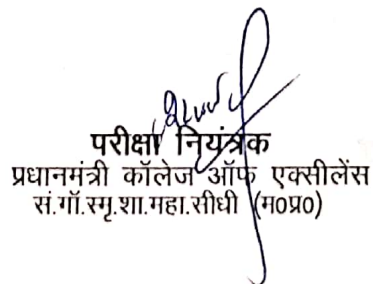 परीक्षा नियंत्रक
प्रधानमंत्री कॉलेज ऑफ एक्सीलेंस
सं.गॉ.स्मृ.शा.महा.सीधी (म०प्र०)